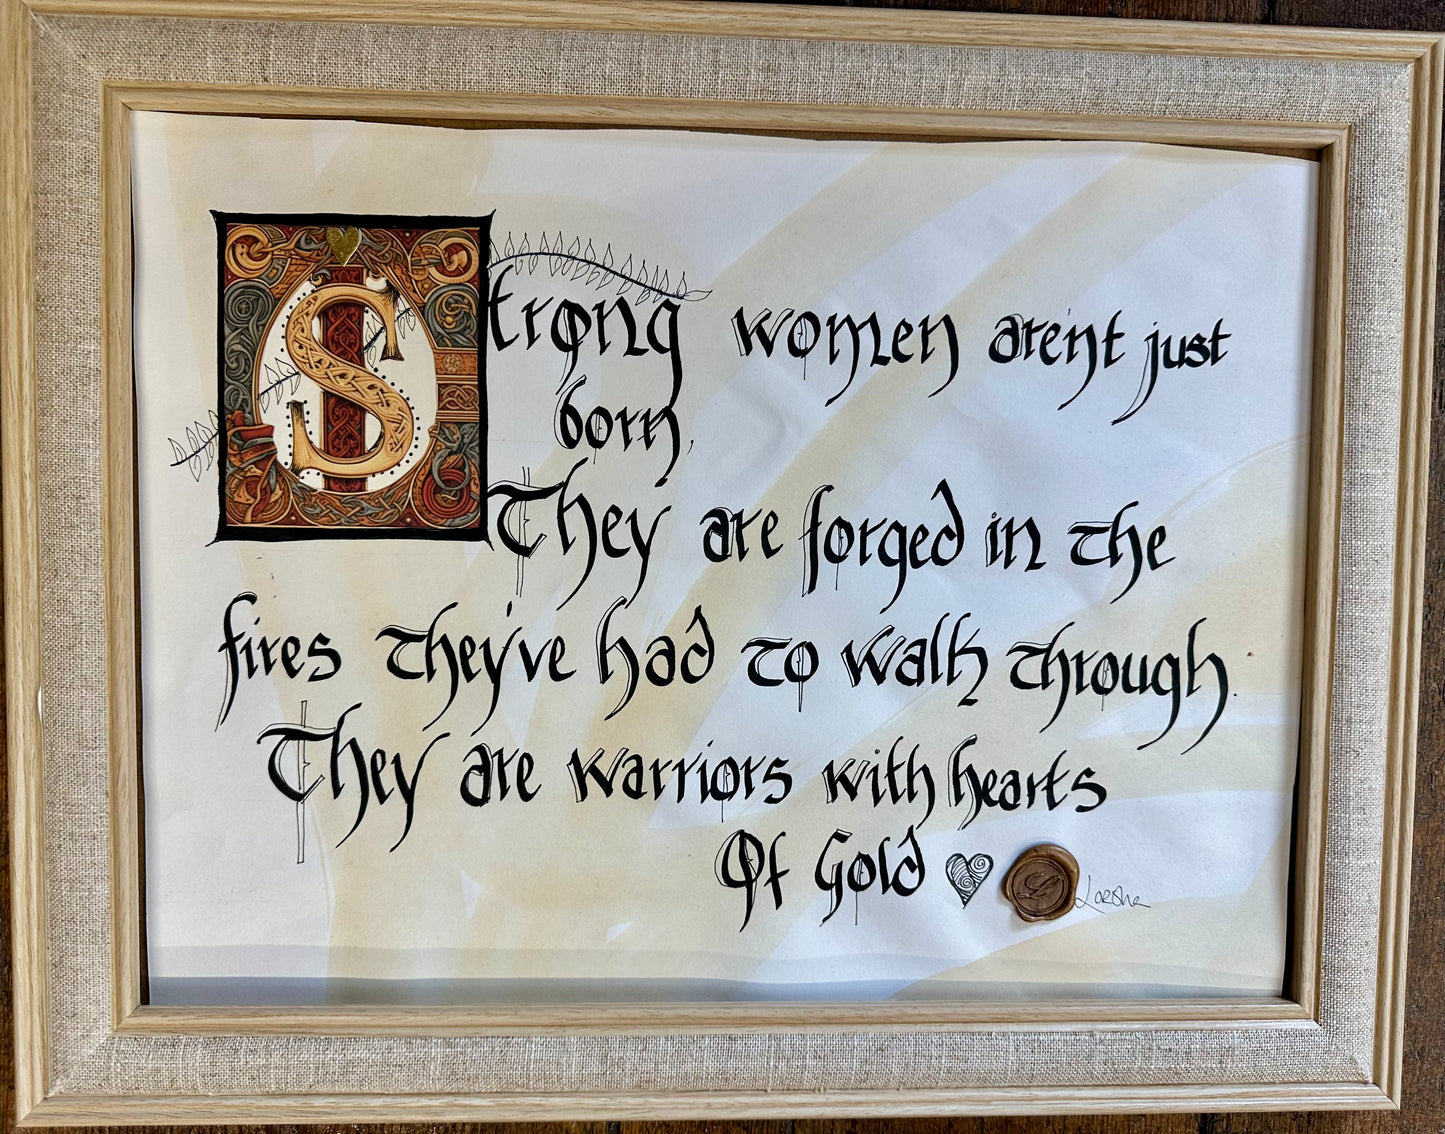 Strong women aren't just
born,
They are forged in the
fires they've had to walk through.
They are warriors with hearts
Of Gold
L